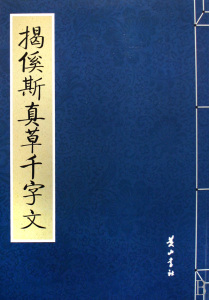 揭傒斯真草千字文
黄山书社